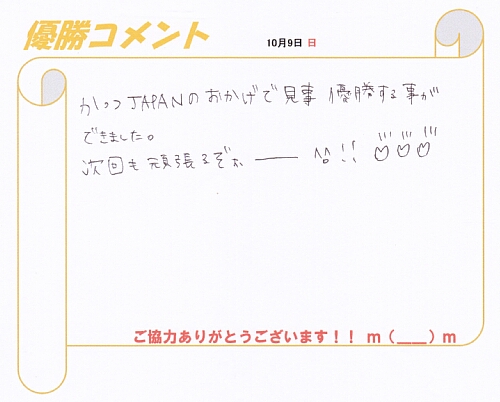 優勝コメント
10月9日 日
かっつJAPANのおかげで見事優勝する事が
できました。
次回も頑張るぞぉ――― ^o^!!
ご協力ありがとうございます！！ m（＿＿）m